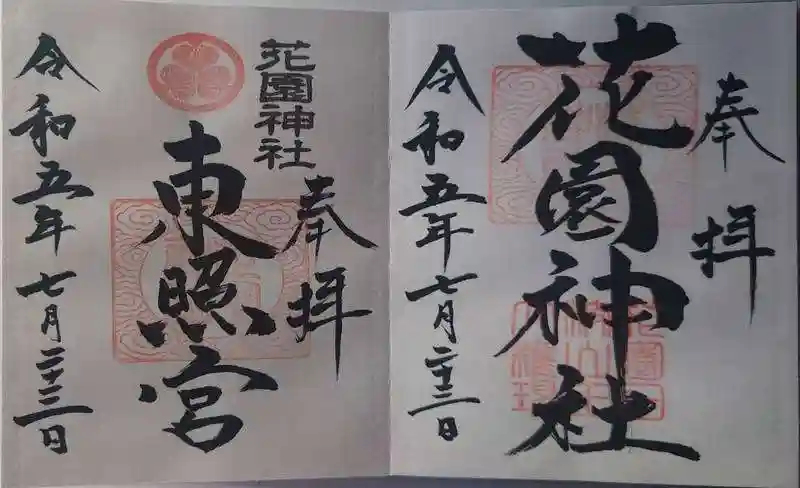 奉拝
花園神社
令和五年七月二十三日
花園神社
奉拝
東照宮
令和五年七月二十三日